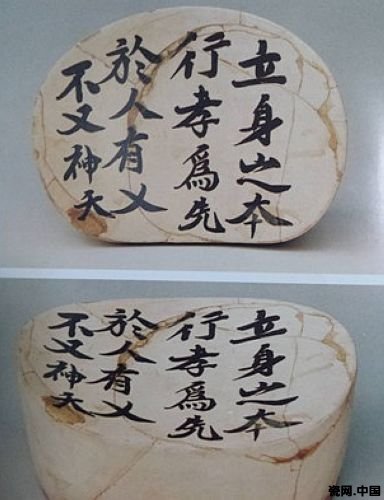 立身之本
行孝爲先
於人有义
不又神天
立身之本
行孝爲先
於人有义
不又神天
瓷网.中国